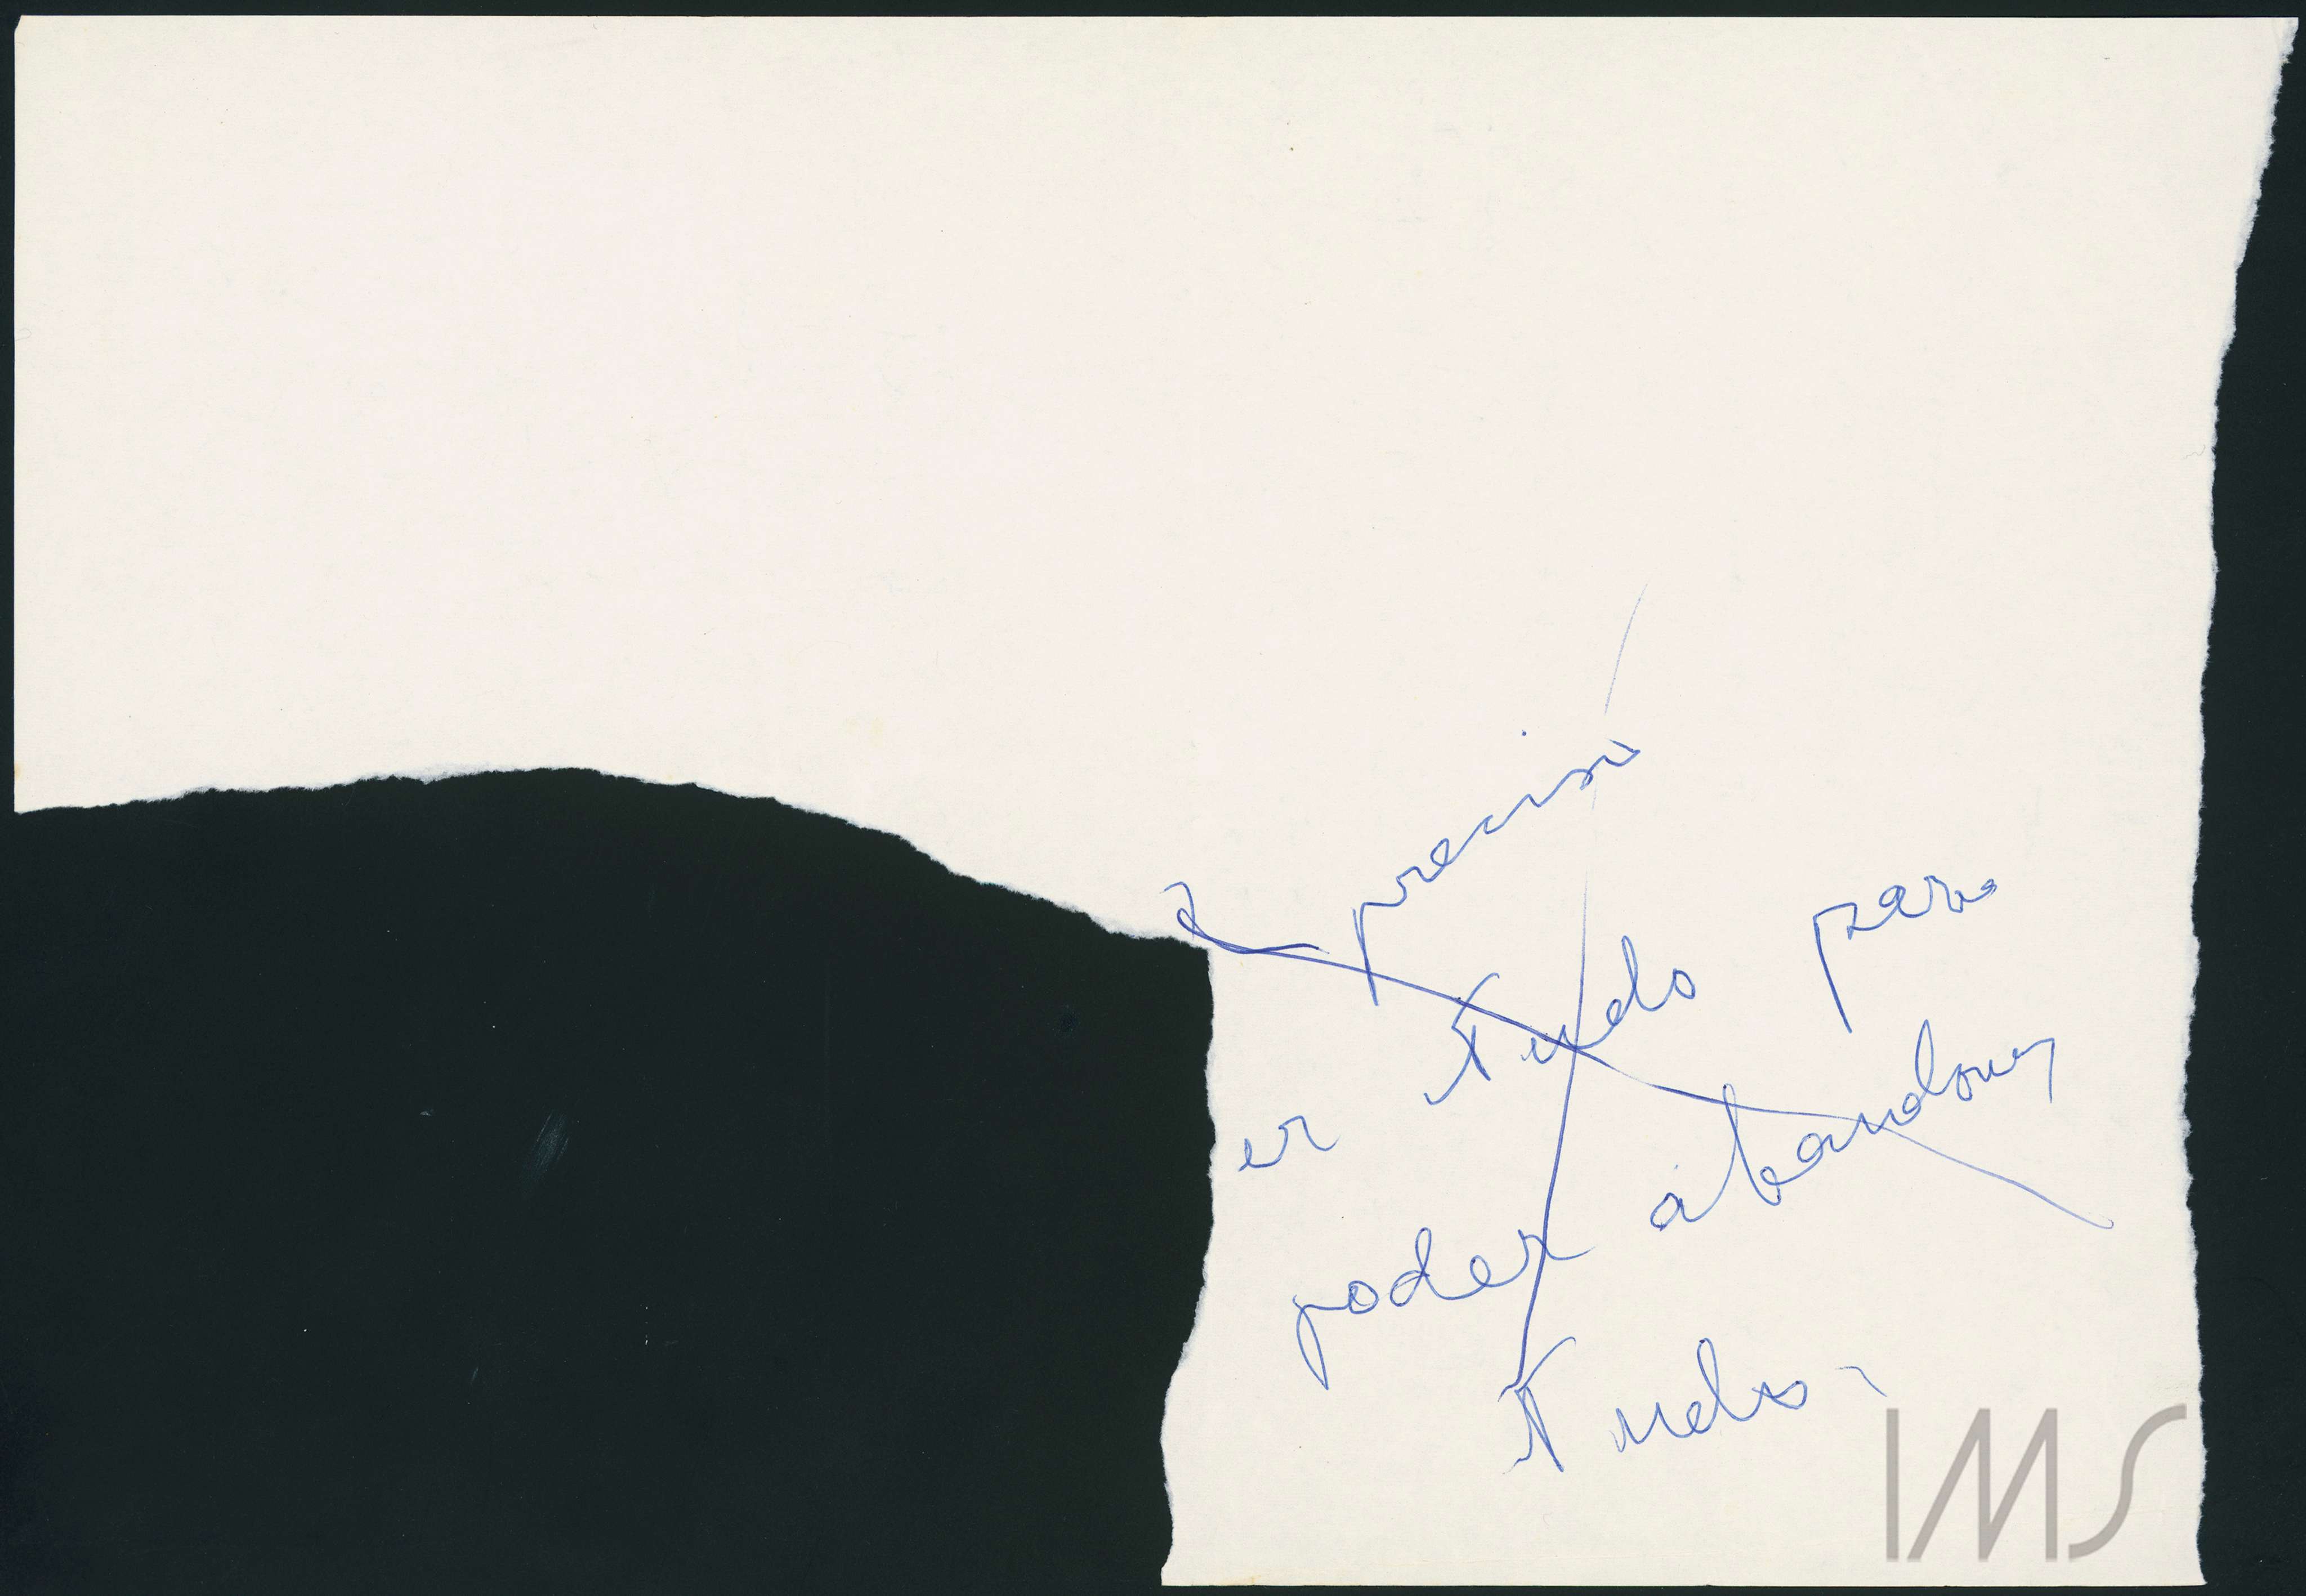 É preciso
er tudo para
poder abandonar
tudo.
IMS